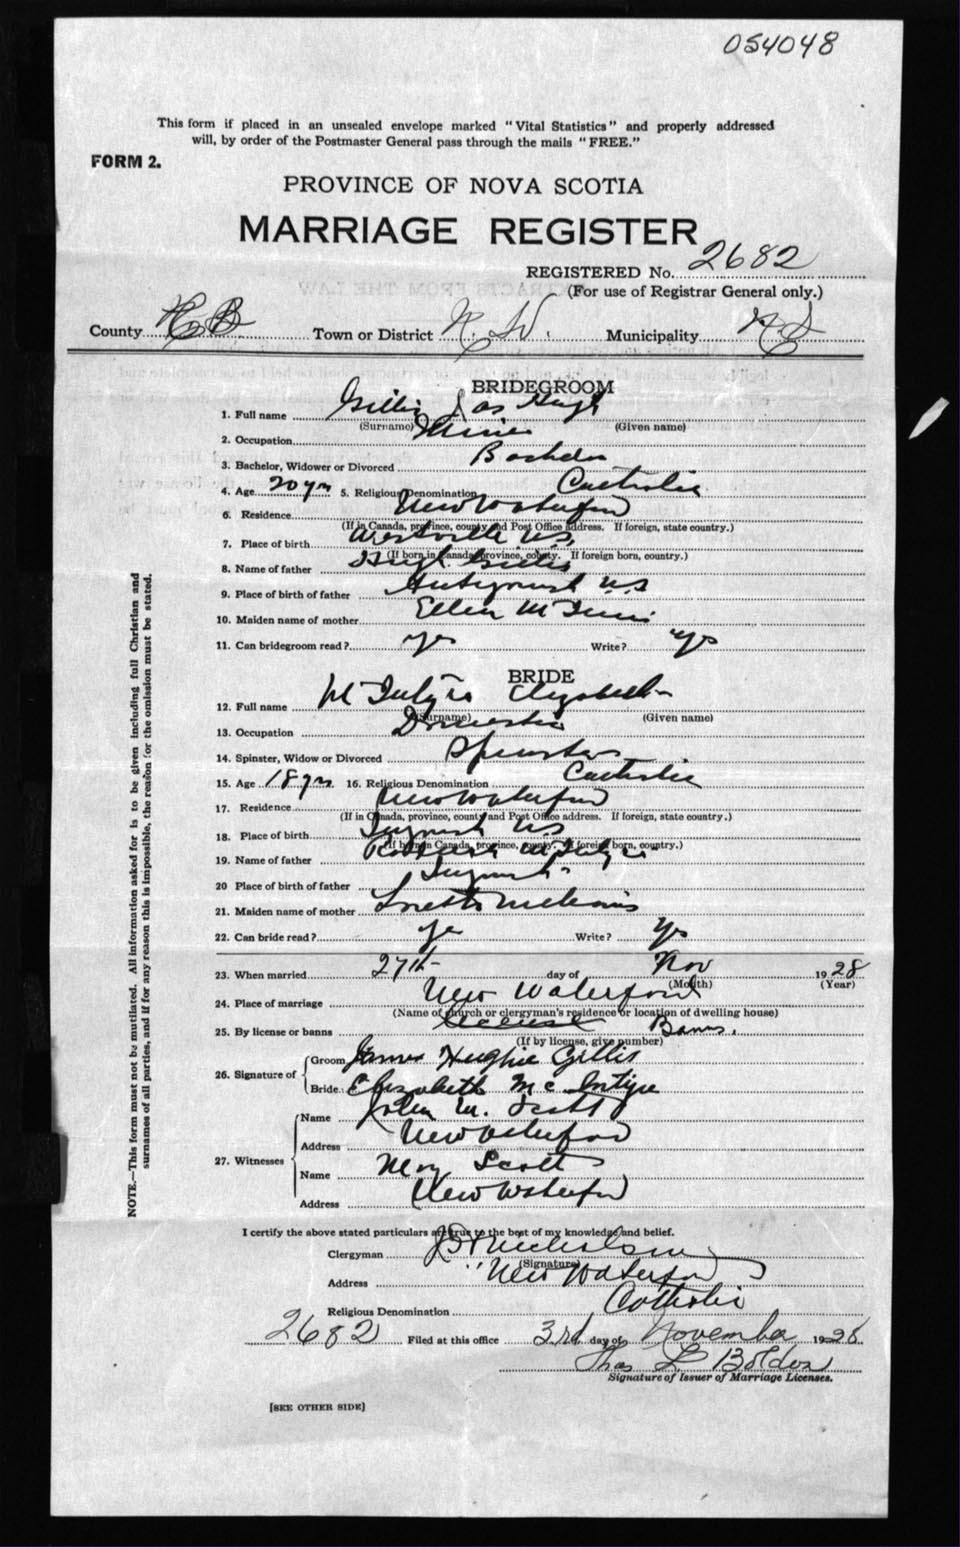 054048
This form if placed in an unsealed envelope marked "Vital Statistics" and properly addressed
will, by order of the Postmaster General pass through the mails "FREE."
FORM 2.
PROVINCE OF NOVA SCOTIA
MARRIAGE REGISTER
REGISTERED No. 2682
(For use of Registrar General only.)
County C B Town or District N. W. Municipality
BRIDEGROOM
1. Full name Gillis Jas Hugh
(Surname) (Given name)
2. Occupation Miner
3. Bachelor, Widower or Divorced Bachelor
4. Age 20 yrs 5. Religious Denomination Catholic
6. Residence New Waterford
(If in Canada, province, county and Post Office address. If foreign, state country.)
7. Place of birth Westville N.S.
(If born in Canada, province, county. If foreign born, country.)
8. Name of father Hugh Gillis
9. Place of birth of father Antigonish N.S
10. Maiden name of mother Ellen
11. Can bridegroom read? yes Write? yes
BRIDE
12. Full name McIntyre Elizabeth
(Surname) (Given name)
13. Occupation Domestic
14. Spinster, Widow or Divorced Spinster
15. Age 18 yrs 16. Religious Denomination Catholic
17. Residence New Waterford
(If in Canada, province, county and Post Office address. If foreign, state country.)
18. Place of birth NS
(If born in Canada, province, county. If foreign born, country.)
19. Name of father McIntyre
20 Place of birth of father
21. Maiden name of mother
22. Can bride read? yes Write? yes
23. When married 27th day of Nov 1928
(Month) (Year)
24. Place of marriage New Waterford
(Name of church or clergyman's residence or location of dwelling house)
25. By license or banns license Banns.
(If by license, give number)
26. Signature of Groom James Hughie Gillis
Bride Elizabeth Mc Intyre
27. Witnesses Name John M. Scott
Address New Waterford
Name Mary Scott
Address New Waterford
I certify the above stated particulars are true to the best of my knowledge and belief.
Clergyman Nicholson
(Signature)
Address New Waterford
Religious Denomination Catholic
2682 Filed at this office 3rd day of November 1928
Thos L Bolden
Signature of Issuer of Marriage Licenses.
[SEE OTHER SIDE]
NOTE.—This form must not be mutilated. All information asked for is to be given including full Christian and
surnames of all parties, and if for any reason this is impossible, the reason for the omission must be stated.